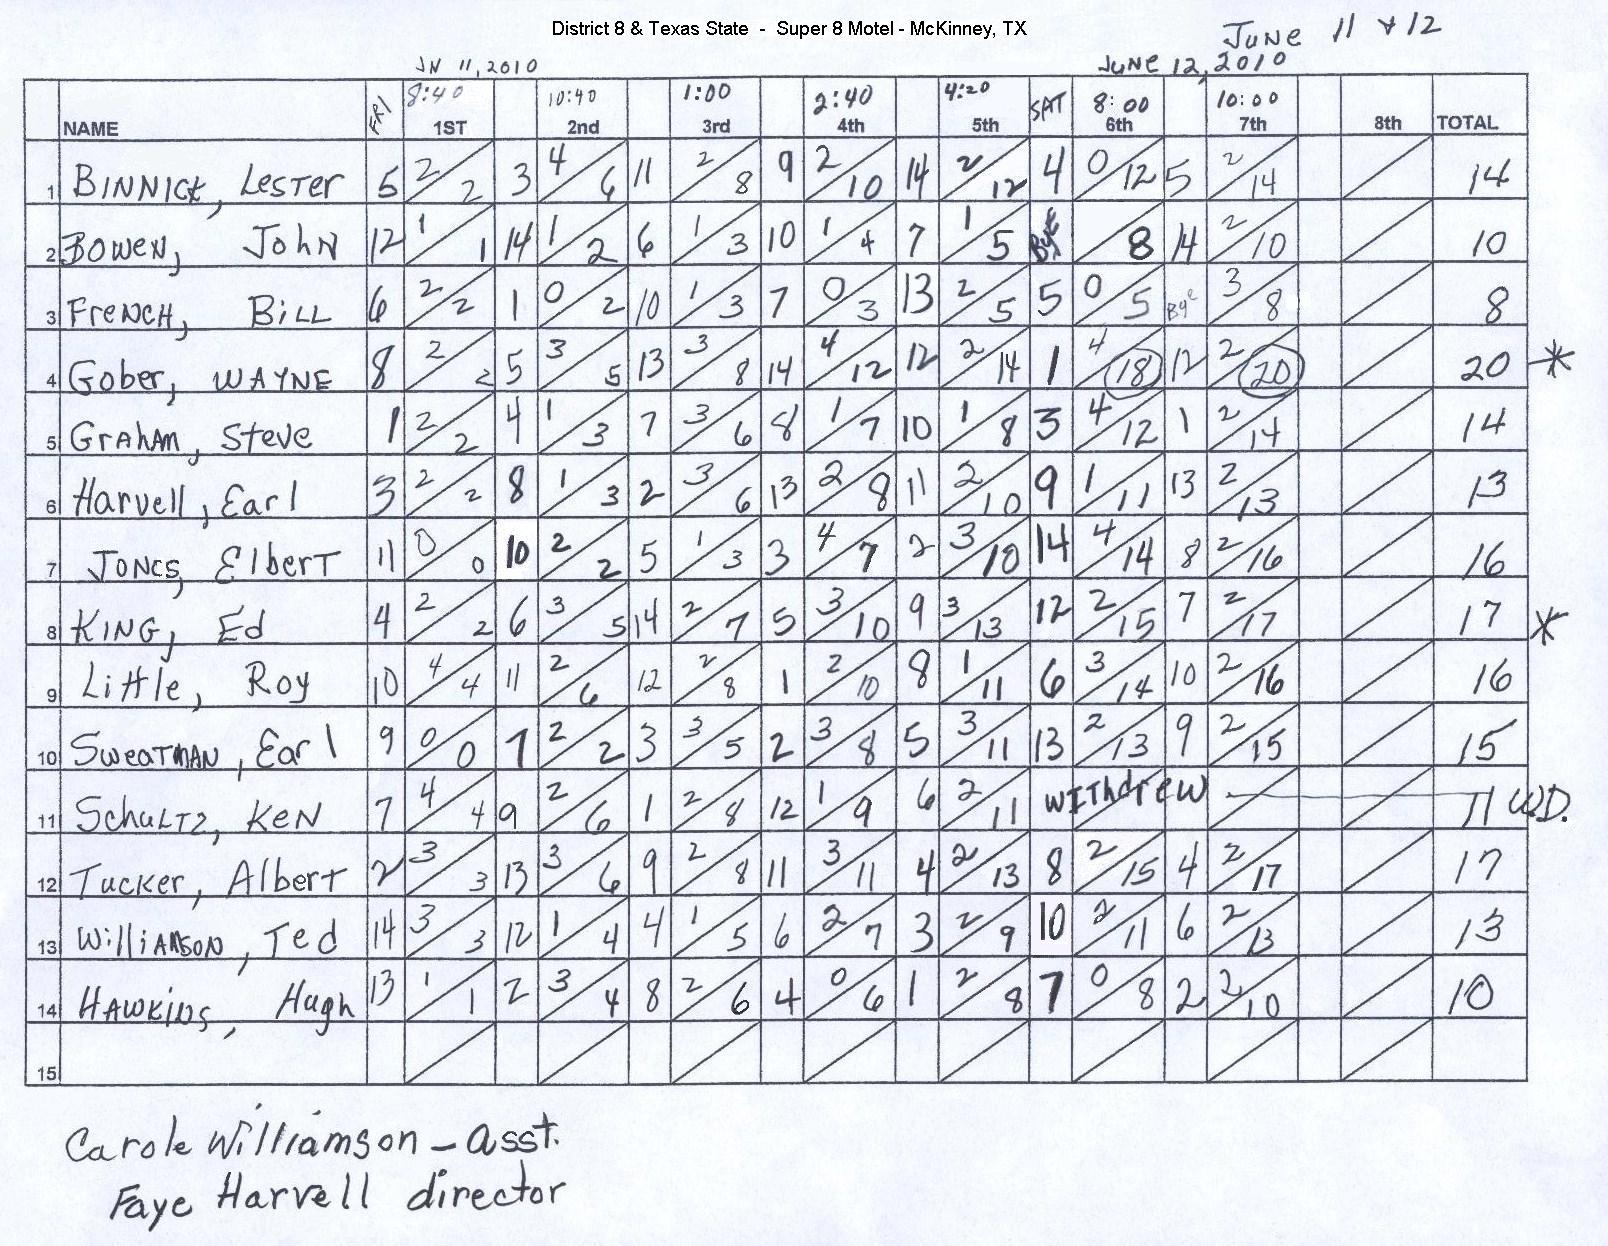 District 8 & Texas State - Super 8 Motel - McKinney, TX
June 11 & 12
JN 11, 2010 June 12, 2010
NAME FRI 8:40 1ST 10:40 2nd 1:00 3rd 2:40 4th 4:20 5th SAT 8:00 6th 10:00 7th 8th TOTAL
1 BINNICK, Lester 5 2/2 3 4/6 11 2/8 9 2/10 14 2/12 4 0/12 5 2/14 14
2 Bowen, John 12 1/1 14 1/2 6 1/3 10 1/4 7 1/5 Bye 8 14 2/10 10
3 French, Bill 6 2/2 1 0/2 10 1/3 7 0/3 13 2/5 5 0/5 Bye 3/8 8
4 Gober, WAYNE 8 2/2 5 3/5 13 3/8 14 4/12 12 2/14 1 4/18 12 2/20 20 *
5 Graham, Steve 1 2/2 4 1/3 7 3/6 8 1/7 10 1/8 3 4/12 1 2/14 14
6 Harvell, Earl 3 2/2 8 1/3 2 3/6 13 2/8 11 2/10 9 1/11 13 2/13 13
7 Jones, Elbert 11 0/0 10 2/2 5 1/3 3 4/7 2 3/10 14 4/14 8 2/16 16
8 KING, Ed 4 2/2 6 3/5 14 2/7 5 3/10 9 3/13 12 2/15 7 2/17 17 *
9 Little, Roy 10 4/4 11 2/6 12 2/8 1 2/10 8 1/11 6 3/14 10 2/16 16
10 Sweatman, Earl 9 0/0 7 2/2 3 3/5 2 3/8 5 3/11 13 2/13 9 2/15 15
11 Schultz, Ken 7 4/4 9 2/6 1 2/8 12 1/9 6 2/11 withdrew 11 W.D.
12 Tucker, Albert 2 3/3 13 3/6 9 2/8 11 3/11 4 2/13 8 2/15 4 2/17 17
13 Williamson, Ted 14 3/3 12 1/4 4 1/5 6 2/7 3 2/9 10 2/11 6 2/13 13
14 Hawkins, Hugh 13 1/1 2 3/4 8 2/6 4 0/6 1 2/8 7 0/8 2 2/10 10
15
Carole Williamson - asst.
Faye Harvell director